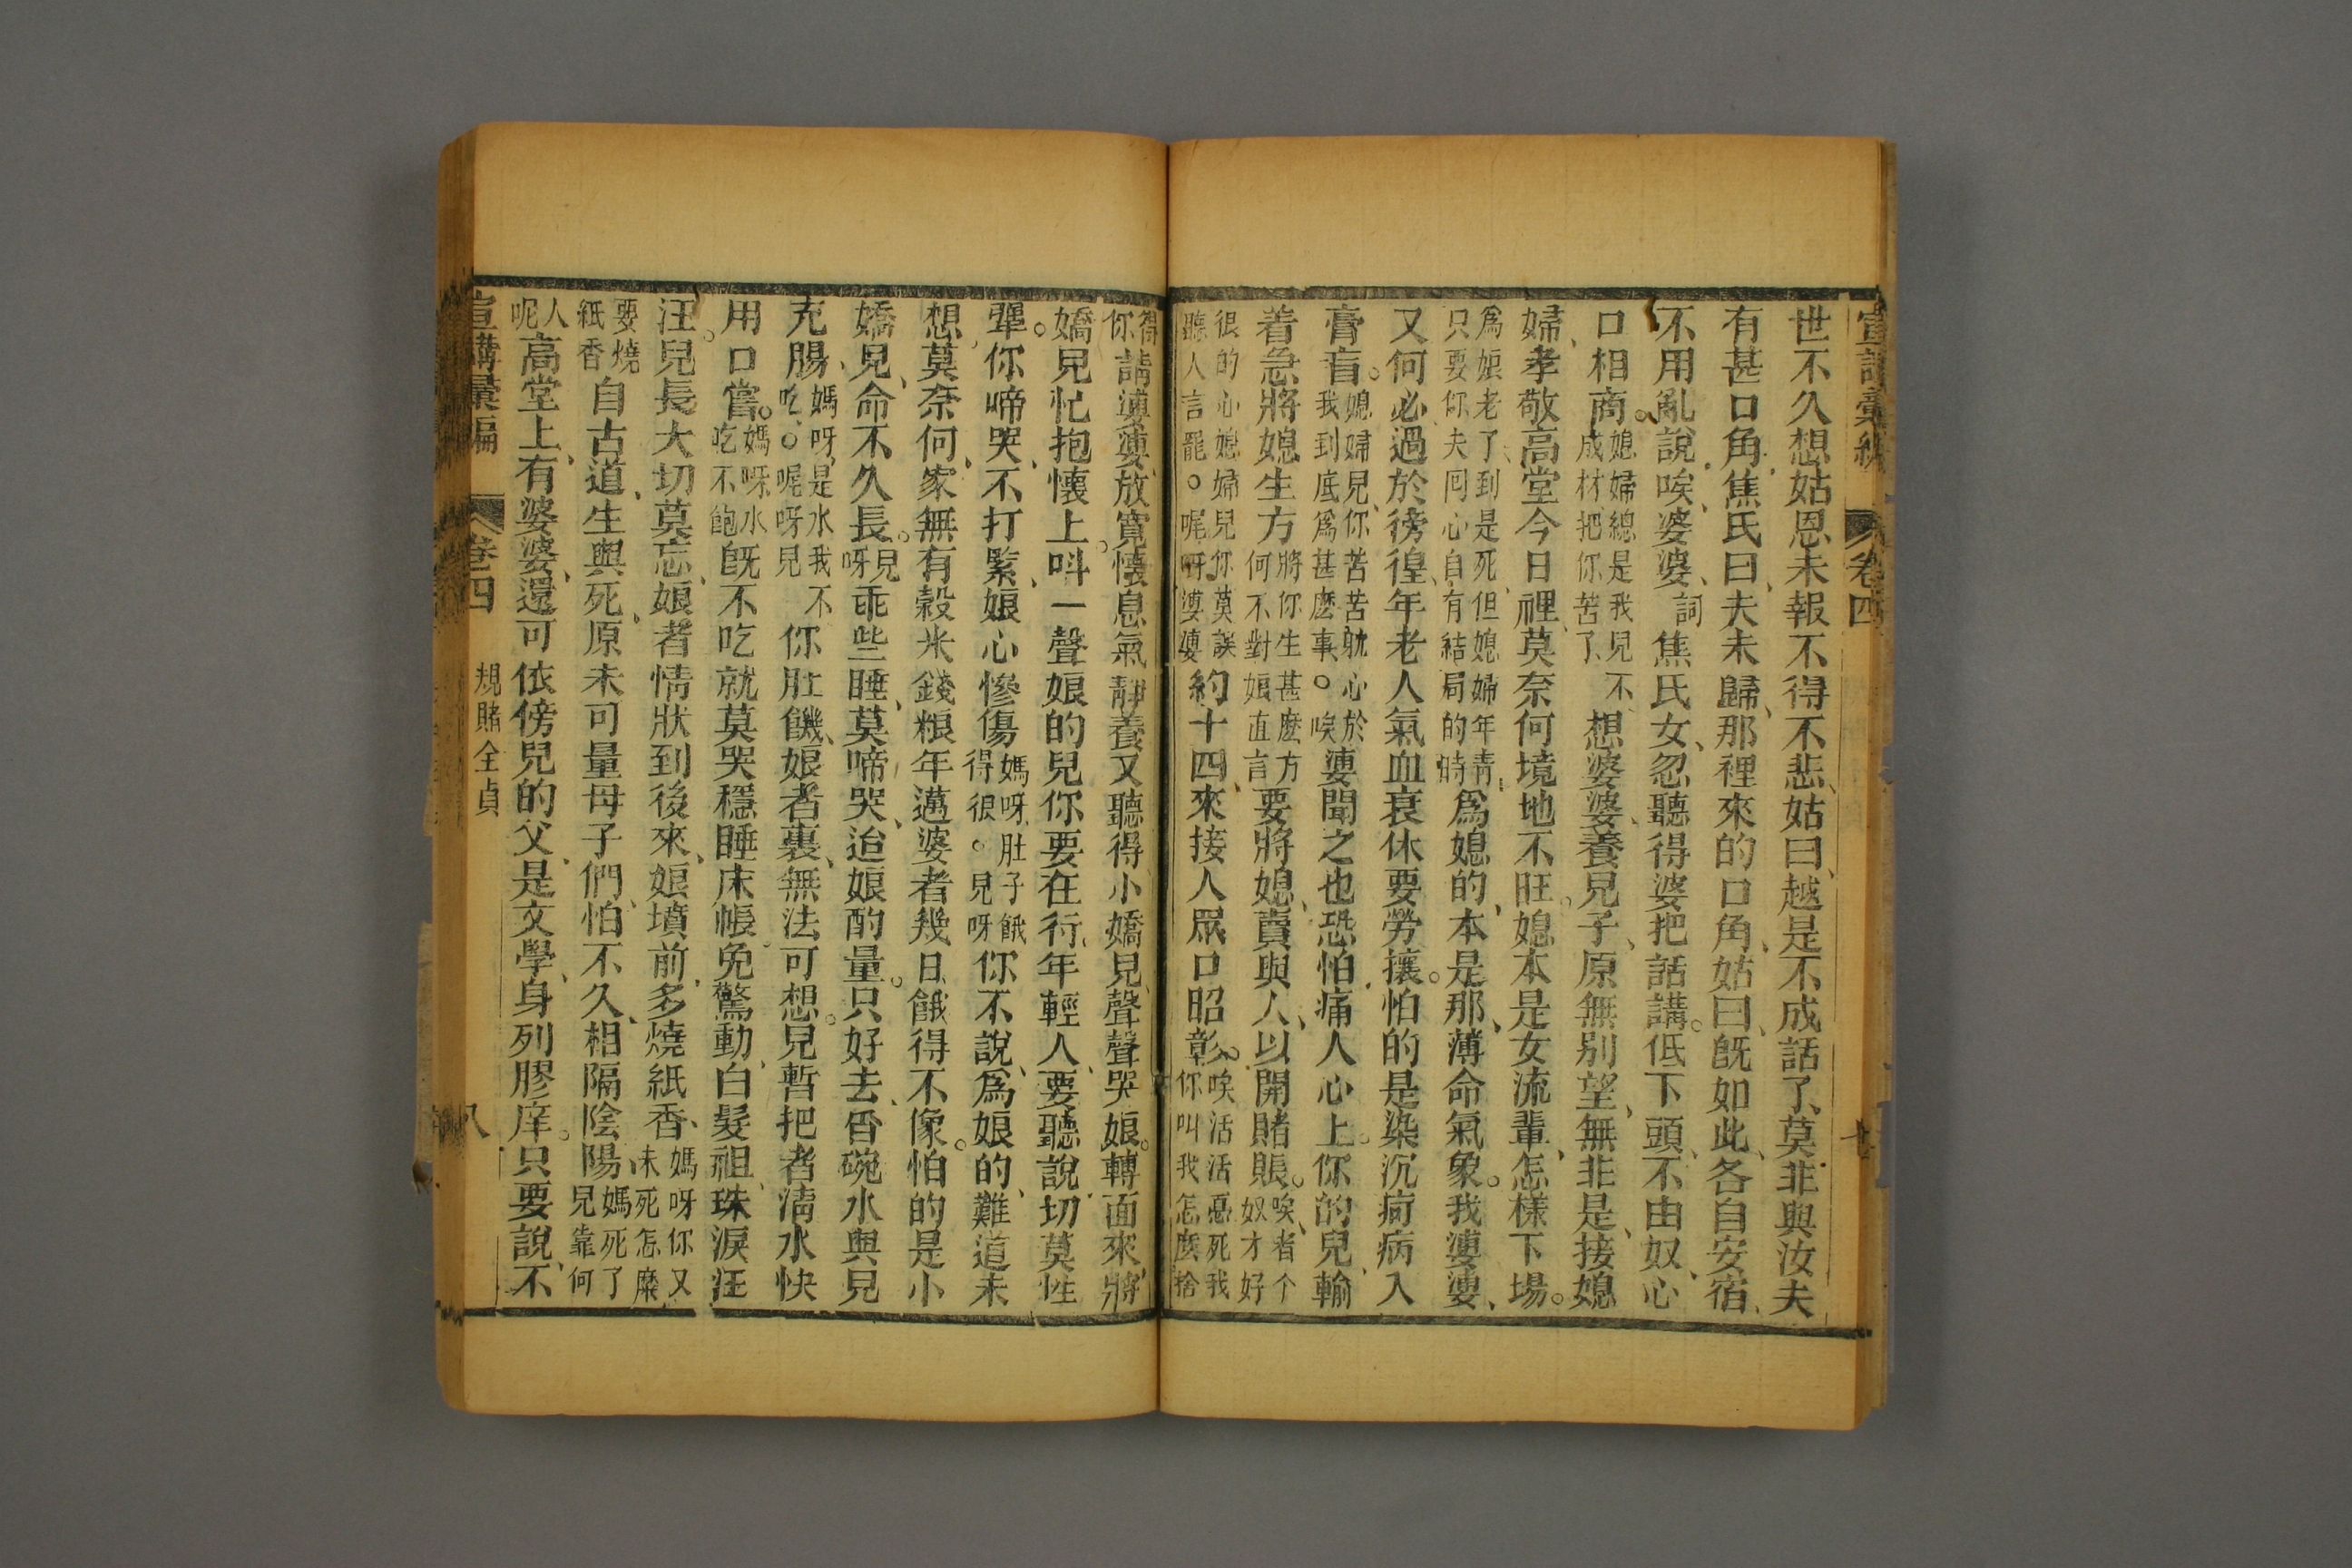 宣講彙編 卷四
世不久想姑恩未報不得不悲、姑曰、越是不成話了、莫非與汝夫
有甚口角、焦氏曰、夫未歸、那裡來的口角、姑曰、旣如此、各自安宿、
不用亂說、唉、婆婆、詞 焦氏女、忽聽得婆把話講。低下頭、不由奴、心
口相商。媳婦總是我兒不成材把你苦了、想婆婆、養兒子、原無別望、無非是、接媳
婦、孝敬高堂今日裡、莫奈何境地不旺。媳本是女流輩、怎樣下場。
爲娘老了、到是死、但媳婦年靑、只要你夫回心自有結局的時 爲媳的、本是那、薄命氣象。我婆婆、
又何必過於徬徨、年老人氣血衰休要勞攘。怕的是染沉疴病入
膏肓。媳婦兒、你苦苦躭心於我到底爲甚麽事。唉 婆聞之也恐怕痛人心上。你的兒、輸
着急將媳生方將你生甚麽方何不對娘直言 要將媳、賣與人、以開賭賬。唉、者个奴才好
很的心媳婦兒你莫誤聽人言罷。呢呀婆婆 約十四、來接人眾口昭彰。唉活活慪死我你叫我怎麽捨
得你 請婆婆、放寬懷息氣靜養又聽得小嬌兒、聲聲哭娘。轉面來、將
嬌兒忙抱懷上。呌一聲娘的兒你要在行、年輕人、要聽說、切莫性
犟。你啼哭、不打緊、娘心慘傷媽呀、肚子餓得很。兒呀 你不說、爲娘的、難道未
想、莫奈何、家無有穀米錢粮年邁婆者幾日餓得不像。怕的是小
嬌兒、命不久長。兒呀 乖些睡、莫啼哭、迨娘酌量。只好去、舀碗水與兒
充腸、媽呀、是水我不吃、。呢呀兒 你肚饑、娘者裏、無法可想。兒暫把者淸水快
用口嘗。媽呀水吃不飽 旣不吃就莫哭穩睡床帳、免驚動、白髮祖、珠淚汪
汪。兒長大切莫忘、娘者情狀到後來、娘墳前、多燒紙香、媽呀你又未死怎麽
要燒紙香 自古道、生與死、原未可量母子們、怕不久、相隔陰陽、媽死了兒靠何
人呢 高堂上、有婆婆、還可依傍兒的父、是文學、身列膠庠。只要說、不
宣講彙編 卷四 規賭全貞 八